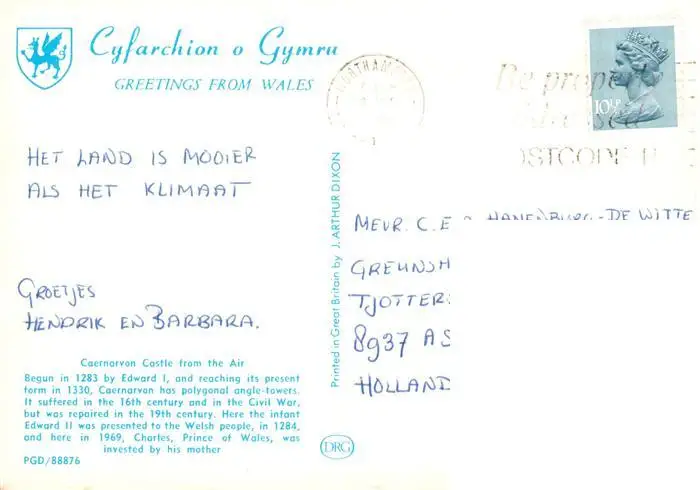 Cyfarchion o Gymru
GREETINGS FROM WALES
10½P
POSTCODE
HET LAND IS MOOIER
ALS HET KLIMAAT
GROETJES
HENDRIK EN BARBARA.
Caernarvon Castle from the Air
Begun in 1283 by Edward I, and reaching its present
form in 1330, Caernarvon has polygonal angle-towers.
It suffered in the 16th century and in the Civil War,
but was repaired in the 19th century. Here the infant
Edward II was presented to the Welsh people, in 1284,
and here in 1969, Charles, Prince of Wales, was
invested by his mother
PGD/88876
Printed in Great Britain by J. ARTHUR DIXON
DRG
MEVR. C. E HANENBURG-DE WITTE
TJOTTER
8937 AS
HOLLAND